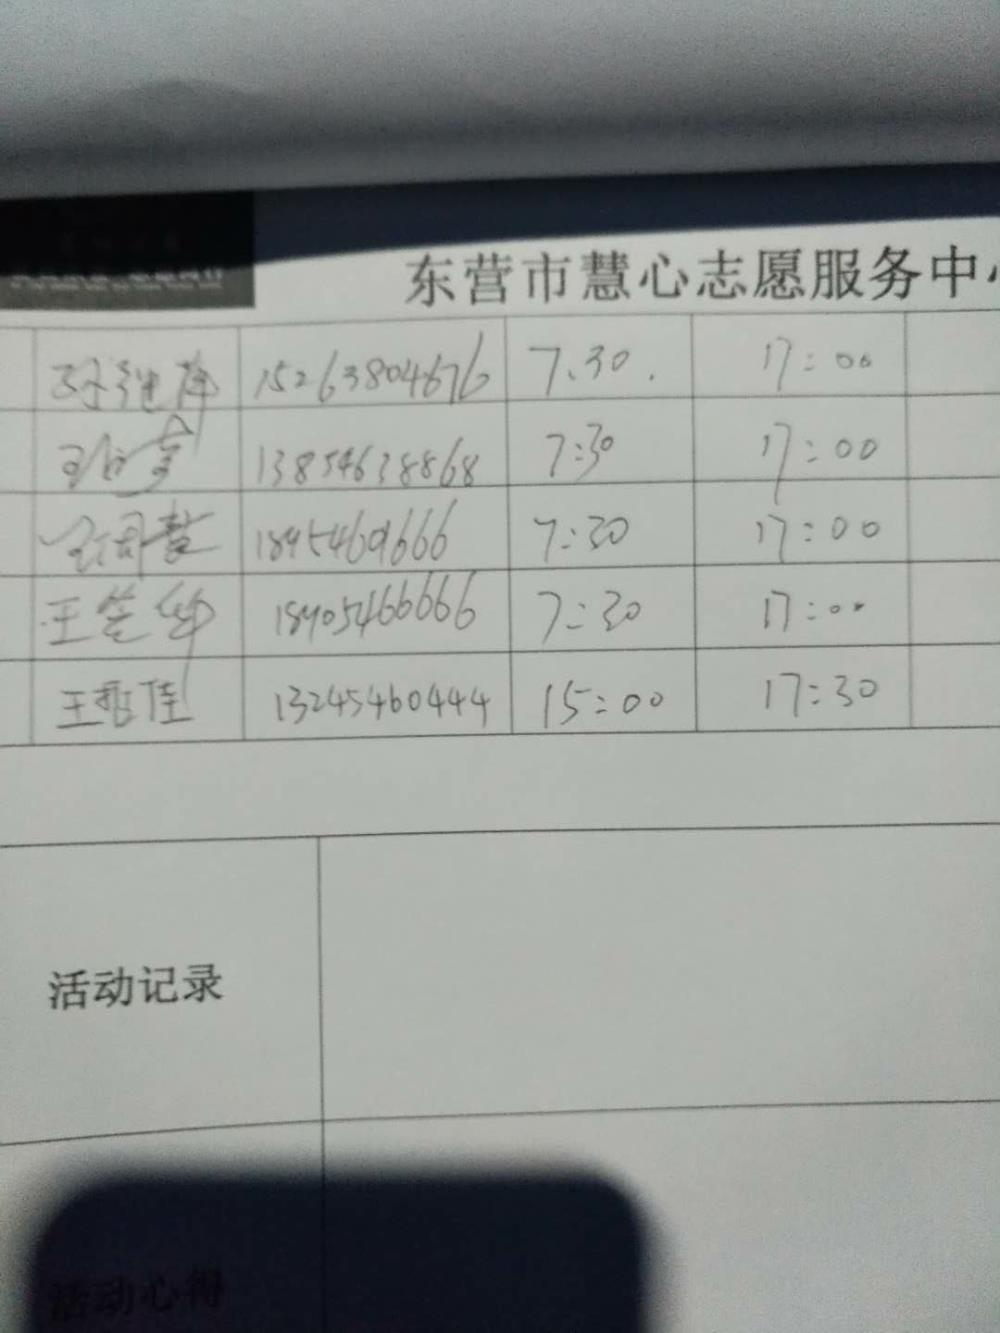 东营市慧心志愿服务中心
15263804676 7.30. 17:00
13854638868 7:30 17:00
18954609666 7:30 17:00
王笠华 18905466666 7:30 17:00
王哲佳 13245460444 15:00 17:30
活动记录
活动心得